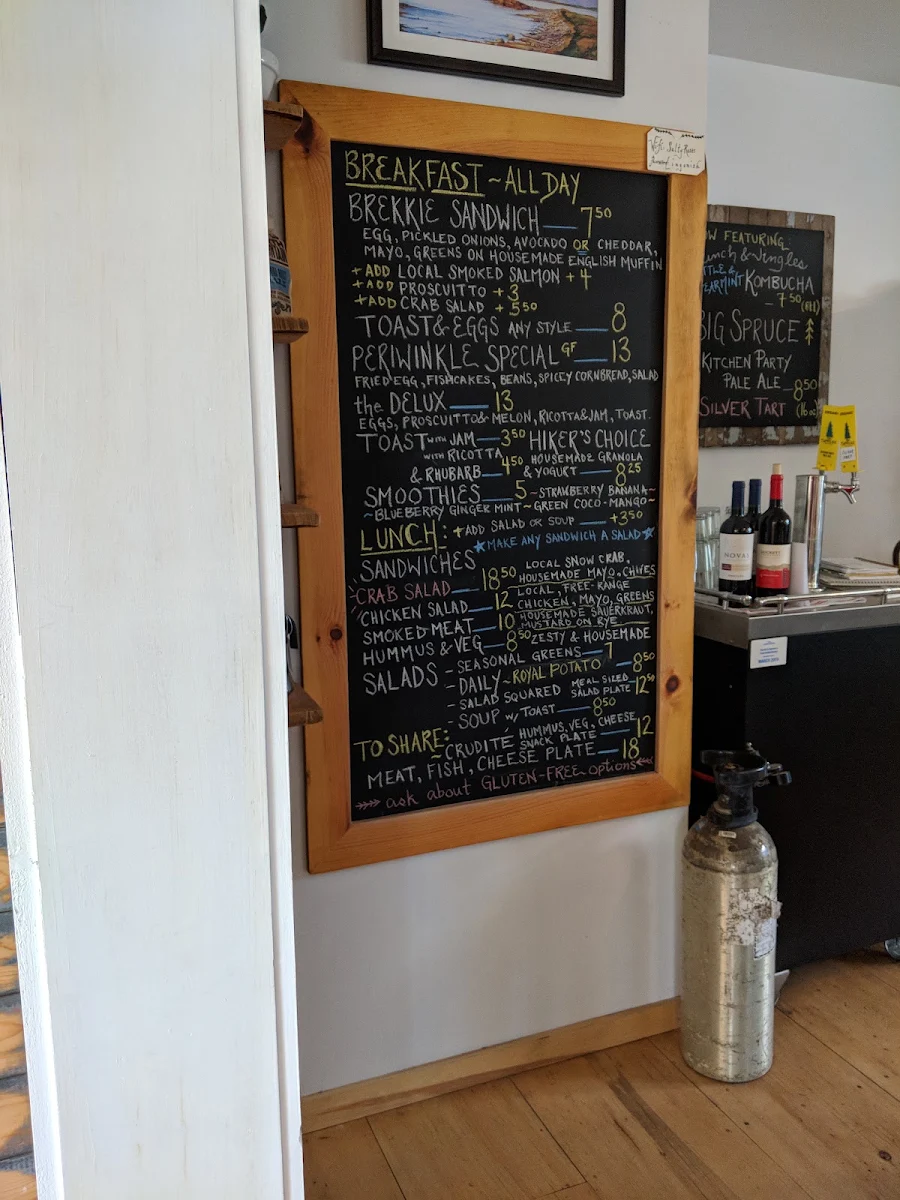 BREAKFAST ~ ALL DAY
BREKKIE SANDWICH — 7.50
EGG, PICKLED ONIONS, AVOCADO OR CHEDDAR,
MAYO, GREENS ON HOUSEMADE ENGLISH MUFFIN
+ADD LOCAL SMOKED SALMON +4
+ADD PROSCUITTO +3
+ADD CRAB SALAD +5.50
TOAST & EGGS ANY STYLE — 8
PERIWINKLE SPECIAL GF — 13
FRIED EGG, FISHCAKES, BEANS, SPICEY CORNBREAD, SALAD
the DELUX — 13
EGGS, PROSCUITTO & MELON, RICOTTA & JAM, TOAST.
TOAST WITH JAM — 3.50
WITH RICOTTA
& RHUBARB — 4.50
HIKER'S CHOICE
HOUSEMADE GRANOLA
& YOGURT — 8.25
SMOOTHIES — 5 ~STRAWBERRY BANANA~
~BLUEBERRY GINGER MINT~GREEN COCO-MANGO~
LUNCH: +ADD SALAD OR SOUP — +3.50
★MAKE ANY SANDWICH A SALAD★
SANDWICHES
CRAB SALAD — 18.50 LOCAL SNOW CRAB,
HOUSEMADE MAYO, CHIVES
CHICKEN SALAD — 12 LOCAL, FREE-RANGE
CHICKEN, MAYO, GREENS
SMOKED MEAT — 10 HOUSEMADE SAUERKRAUT,
MUSTARD ON RYE
HUMMUS & VEG — 8.50 ZESTY & HOUSEMADE
SALADS - SEASONAL GREENS — 7
- DAILY~ROYAL POTATO — 8.50
- SALAD SQUARED MEAL SIZED
SALAD PLATE 12.50
- SOUP w/ TOAST — 8.50
TO SHARE:
CRUDITÉ HUMMUS, VEG, CHEESE
SNACK PLATE — 12
MEAT, FISH, CHEESE PLATE — 18
ask about GLUTEN-FREE options
Wifi:
W FEATURING:
& Jingles
KOMBUCHA
7.50
BIG SPRUCE
KITCHEN PARTY
PALE ALE — 8.50
SILVER TART (16oz)
NOVAS